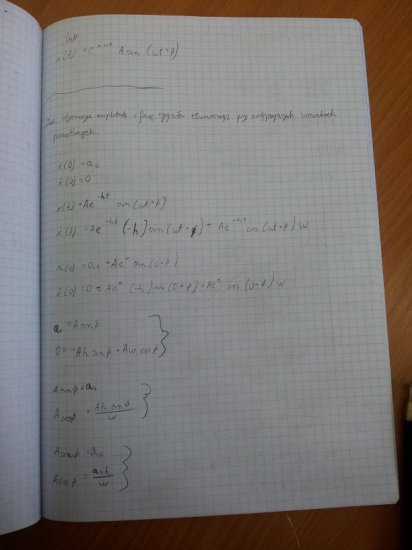 x(t) = e^-ht A sin (ωt+φ)
Zad. Wyznaczyć amplitudę i fazę drgań tłumionego przy następujących warunkach
początkowych.
x(0) = a₀
ẋ(0) = 0
x(t) = Ae^-ht sin(ωt+φ)
ẋ(t) = Ae^-ht (-h) sin(ωt+φ) + Ae^-ht cos(ωt+φ)·ω
x(0) = a₀ = Ae⁰ sin(0+φ)
ẋ(0) = 0 = Ae⁰ (-h) sin(0+φ) + Ae⁰ cos(0+φ)·ω
a₀ = A sinφ
0 = -Ah sinφ + Aω cosφ
A sinφ = a₀
A cosφ = Ah sinφ / ω
A sinφ = a₀
A cosφ = a₀h / ω